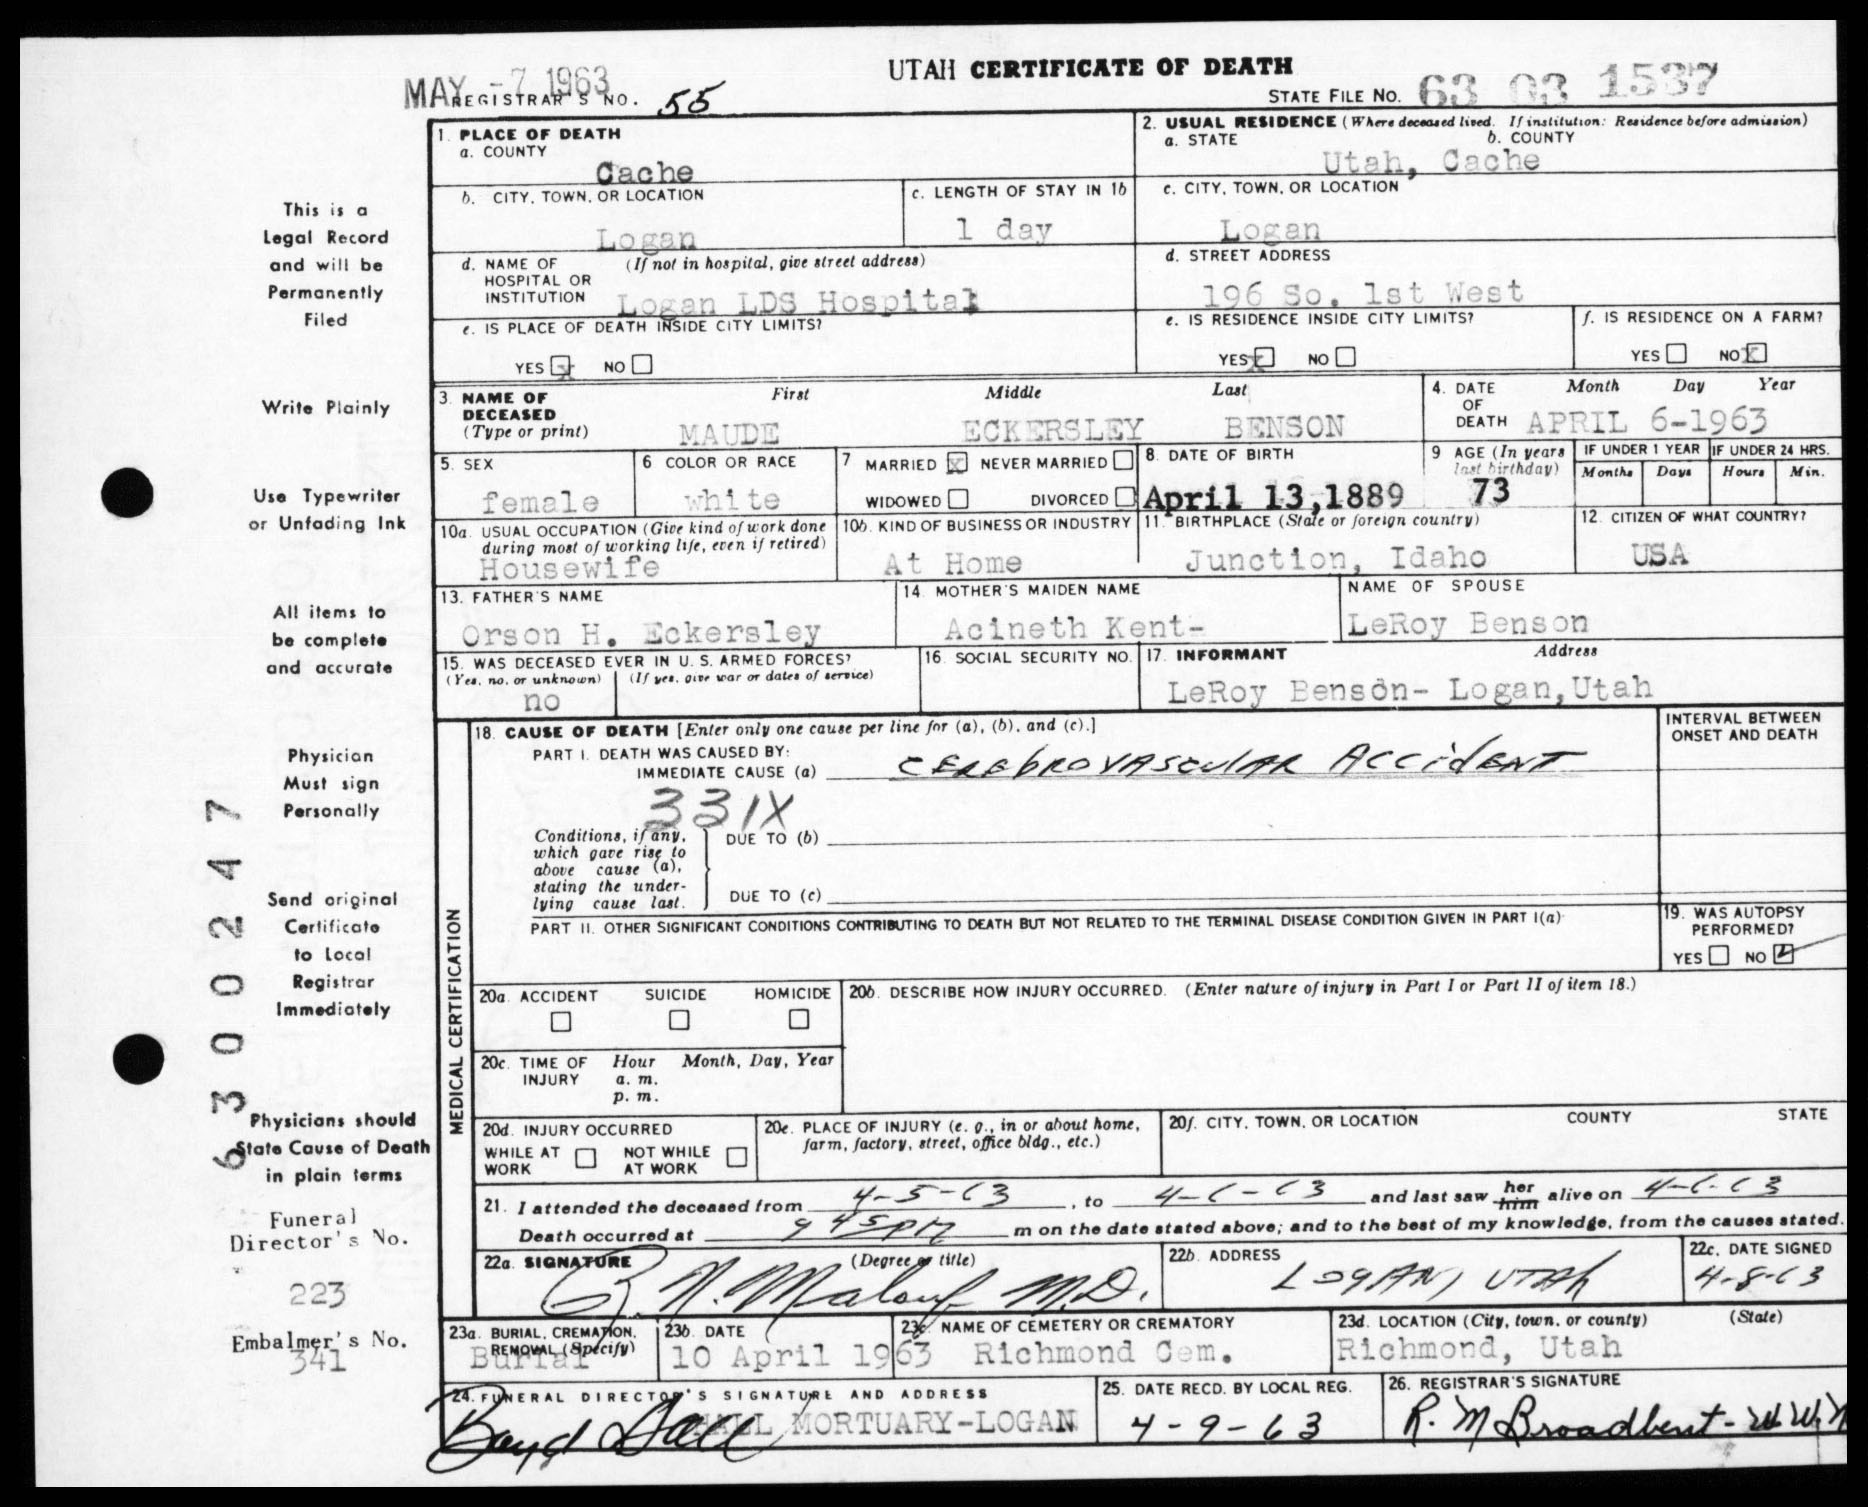 UTAH CERTIFICATE OF DEATH
MAY -7 1963
REGISTRAR'S NO. 55
STATE FILE NO. 63 03 1537
1. PLACE OF DEATH
a. COUNTY
Cache
2. USUAL RESIDENCE (Where deceased lived. If institution: Residence before admission)
a. STATE b. COUNTY
Utah, Cache
b. CITY, TOWN, OR LOCATION
Logan
c. LENGTH OF STAY IN 1b
1 day
c. CITY, TOWN, OR LOCATION
Logan
d. NAME OF (If not in hospital, give street address)
HOSPITAL OR
INSTITUTION Logan LDS Hospital
d. STREET ADDRESS
196 So. 1st West
e. IS PLACE OF DEATH INSIDE CITY LIMITS?
YES x NO
e. IS RESIDENCE INSIDE CITY LIMITS?
YES x NO
f. IS RESIDENCE ON A FARM?
YES NO x
3. NAME OF First Middle Last
DECEASED
(Type or print) MAUDE ECKERSLEY BENSON
4. DATE Month Day Year
OF
DEATH APRIL 6-1963
5. SEX
female
6 COLOR OR RACE
white
7 MARRIED x NEVER MARRIED
WIDOWED DIVORCED
8. DATE OF BIRTH
April 13, 1889
9 AGE (In years
last birthday)
73
IF UNDER 1 YEAR IF UNDER 24 HRS.
Months Days Hours Min.
10a. USUAL OCCUPATION (Give kind of work done
during most of working life, even if retired)
Housewife
10b. KIND OF BUSINESS OR INDUSTRY
At Home
11. BIRTHPLACE (State or foreign country)
Junction, Idaho
12. CITIZEN OF WHAT COUNTRY?
USA
13. FATHER'S NAME
Orson H. Eckersley
14. MOTHER'S MAIDEN NAME
Acineth Kent-
NAME OF SPOUSE
LeRoy Benson
15. WAS DECEASED EVER IN U. S. ARMED FORCES?
(Yes, no, or unknown) (If yes, give war or dates of service)
no
16. SOCIAL SECURITY NO.
17. INFORMANT Address
LeRoy Benson- Logan, Utah
MEDICAL CERTIFICATION
18. CAUSE OF DEATH [Enter only one cause per line for (a), (b), and (c).]
PART I. DEATH WAS CAUSED BY:
IMMEDIATE CAUSE (a) CEREBROVASCULAR ACCIDENT
INTERVAL BETWEEN
ONSET AND DEATH
331X
Conditions, if any,
which gave rise to
above cause (a),
stating the under-
lying cause last.
DUE TO (b)
DUE TO (c)
PART II. OTHER SIGNIFICANT CONDITIONS CONTRIBUTING TO DEATH BUT NOT RELATED TO THE TERMINAL DISEASE CONDITION GIVEN IN PART I(a)
19. WAS AUTOPSY
PERFORMED?
YES NO
20a. ACCIDENT SUICIDE HOMICIDE
20b. DESCRIBE HOW INJURY OCCURRED. (Enter nature of injury in Part I or Part II of item 18.)
20c. TIME OF Hour Month, Day, Year
INJURY a. m.
p. m.
20d. INJURY OCCURRED
WHILE AT NOT WHILE
WORK AT WORK
20e. PLACE OF INJURY (e. g., in or about home,
farm, factory, street, office bldg., etc.)
20f. CITY, TOWN, OR LOCATION COUNTY STATE
21. I attended the deceased from 4-5-63, to 4-6-63 and last saw her him alive on 4-6-63
Death occurred at 9 45 PM m on the date stated above; and to the best of my knowledge, from the causes stated.
22a. SIGNATURE (Degree or title)
R. N. Malouf M.D.
22b. ADDRESS
LOGAN, UTAH
22c. DATE SIGNED
4-8-63
23a. BURIAL, CREMATION,
REMOVAL (Specify)
Burial
23b. DATE
10 April 1963
23c. NAME OF CEMETERY OR CREMATORY
Richmond Cem.
23d. LOCATION (City, town, or county) (State)
Richmond, Utah
24. FUNERAL DIRECTOR'S SIGNATURE AND ADDRESS
Boyd Hall HALL MORTUARY-LOGAN
25. DATE RECD. BY LOCAL REG.
4-9-63
26. REGISTRAR'S SIGNATURE
R. M Broadbent-
This is a
Legal Record
and will be
Permanently
Filed
Write Plainly
Use Typewriter
or Unfading Ink
All items to
be complete
and accurate
Physician
Must sign
Personally
Send original
Certificate
to Local
Registrar
Immediately
Physicians should
State Cause of Death
in plain terms
6300247
Funeral
Director's No.
223
Embalmer's No.
341